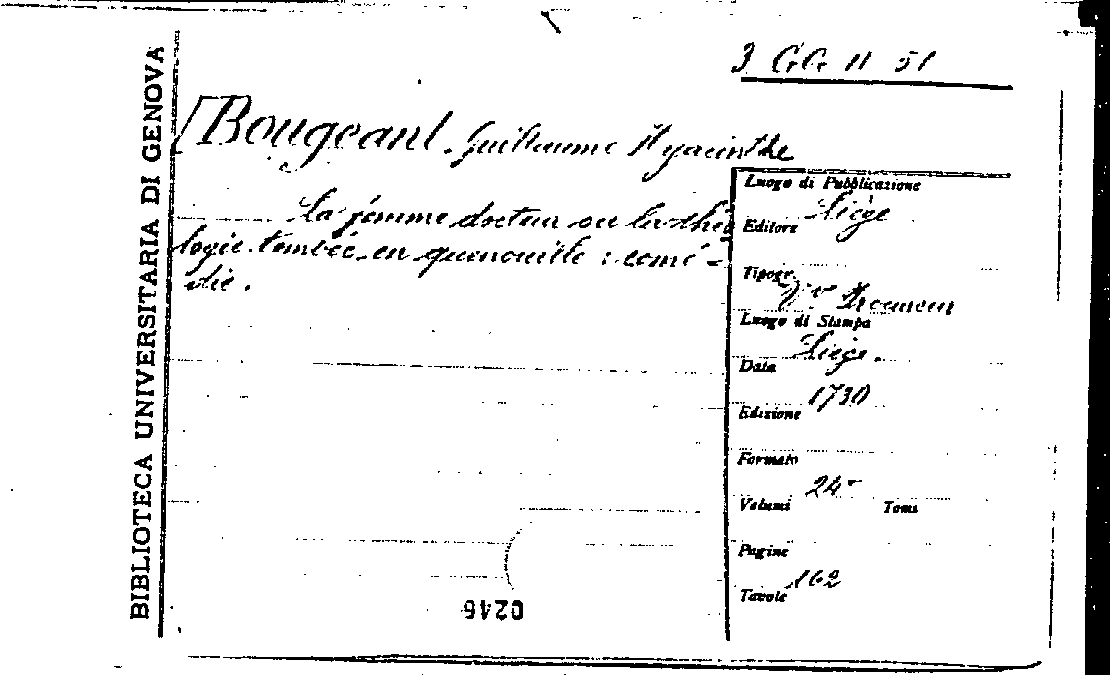 BIBLIOTECA UNIVERSITARIA DI GENOVA
3 GG 11 51
[Bougeant. Guillaume Hyacinthe
La femme docteur ou la théo
logie tombée en quenouille : comé-
die.
Luogo di Pubblicazione
Liège
Editore
Tipogr.
Vve Procureur
Luogo di Stampa
Liège.
Data
1730
Edizione
Formato
24°
Volumi Tomi
Pagine
162
Tavole
0246